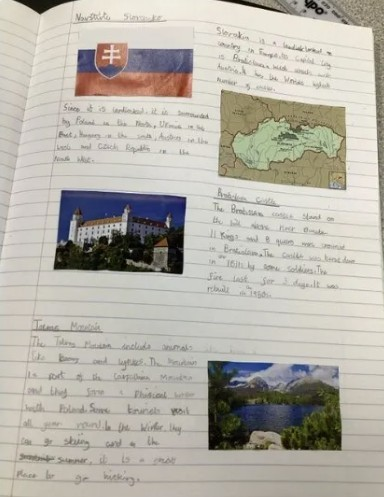 Slovakia is a landlocked
country in Europe. Its capital city
is Bratislava
Austria. It has the highest
number of castles.
Since it is landlocked. It is surrounded
by Poland in the North, Ukraine in the
East, Hungary in the south, Austria in the
west and Czech Republic in the
north west.
Bratislava Castle
The Bratislava castle stand on
the hill River Danube.
11 Kings and 8 queens were crowned
in Bratislava. The castle was burnt down
in 1811 by some soldiers. The
fire last for 3 days. It was
rebuilt in 1950s.
Tatras Mountain
The Tatras Mountain include animals
like Bears and The mountain
is Part of the Carpathian Mountain
and they form a
with Poland. Some tourists
all year round. In the winter, they
can go skiing and in the
summer, it is a great
place to go hiking.